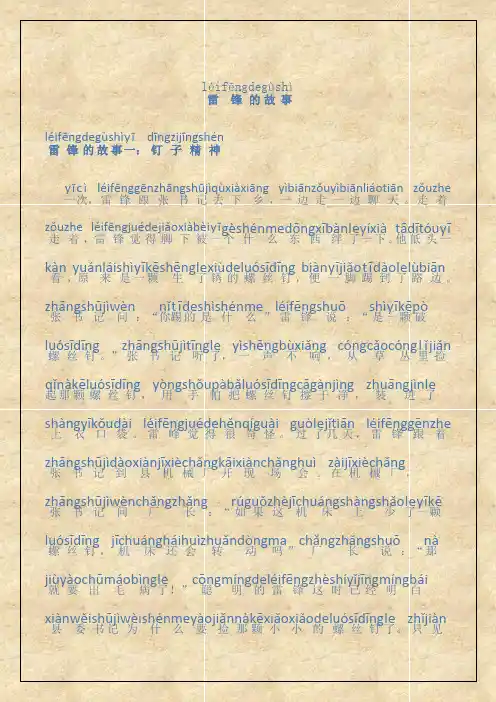 léifēngdegùshì
雷 锋 的 故 事
léifēngdegùshìyī dīngzijīngshén
雷 锋 的 故 事 一：钉 子 精 神
yīcì léifēnggēnzhāngshūjìqùxiàxiāng yìbiānzǒuyìbiānliáotiān zǒuzhe
一次，雷 锋 跟 张 书 记 去 下 乡，一 边 走 一 边 聊 天 。走 着
zǒuzhe léifēngjuédejiǎoxiàbèiyīgèshénmedōngxībànleyíxià tādītóuyī
走 着，雷 锋 觉 得 脚 下 被 一 个 什 么 东 西 绊 了 一 下。他 低 头 一
kàn yuánláishìyīkēshēnglexiùdeluósīdīng biànyījiǎotīdàolelùbiān
看，原 来 是 一 颗 生 了 锈 的 螺 丝 钉，便 一 脚 踢 到 了 路 边。
zhāngshūjìwèn nǐtīdeshìshénme léifēngshuō shìyīkēpò
张 书 记 问：“你踢的 是 什 么 ” 雷 锋 说：“是一颗破
luósīdīng zhāngshūjìtīngle yìshēngbùxiǎng cóngcǎocónglǐjiǎn
螺 丝 钉。” 张 书 记 听 了，一 声 不 响，从 草 丛 里 捡
qǐnàkēluósīdīng yòngshǒupàbǎluósīdīngcāgànjìng zhuāngjìnle
起那颗螺 丝 钉，用 手 帕 把 螺 丝 钉 擦 干 净，装 进 了
shàngyīkǒudài léifēngjuédehěnqíguài guòlejǐtiān léifēnggēnzhe
上 衣 口 袋。雷 峰 觉 得 很 奇 怪。过 了 几 天，雷 锋 跟 着
zhāngshūjìdàoxiànjīxièchǎngkāixiànchǎnghuì zàijīxièchǎng
张 书 记 到 县 机 械 厂 开 现 场 会 。在 机 械 厂，
zhāngshūjìwènchǎngzhǎng rúguǒzhèjīchuángshàngshǎoleyīkē
张 书 记 问 厂 长：“如 果 这 机 床 上 少 了一颗
luósīdīng jīchuángháihuìzhuǎndòngma chǎngzhǎngshuō nà
螺 丝 钉，机 床 还 会 转 动 吗” 厂 长 说：“那
jiùyàochūmáobìngle cōngmíngdeléifēngzhèshíyǐjīngmíngbái
就 要 出 毛 病 了！” 聪 明 的 雷 锋 这 时 已经 明 白
xiànwěishūjìwèishénmeyàojiǎnnàkēxiǎoxiǎodeluósīdīngle zhǐjiàn
县 委 书记 为 什 么 要 捡 那颗 小 小 的 螺 丝 钉了。只 见